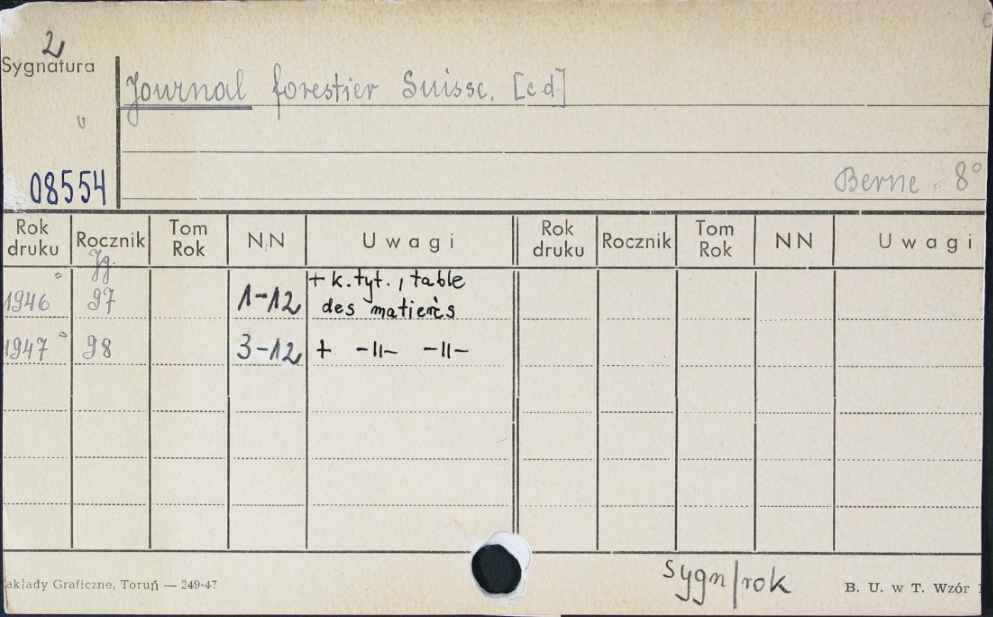 2
Sygnatura
Journal forestier Suisse. [cd]
08554
Berne 8°
Rok druku Rocznik Tom Rok NN Uwagi Rok druku Rocznik Tom Rok NN Uwagi
Jg.
1946 97 1-12 + k.tyt., table
des matierès
1947 98 3-12 + -||- -||-
akłady Graficzne, Toruń — 249-47
sygn/rok
B. U. w T. Wzór